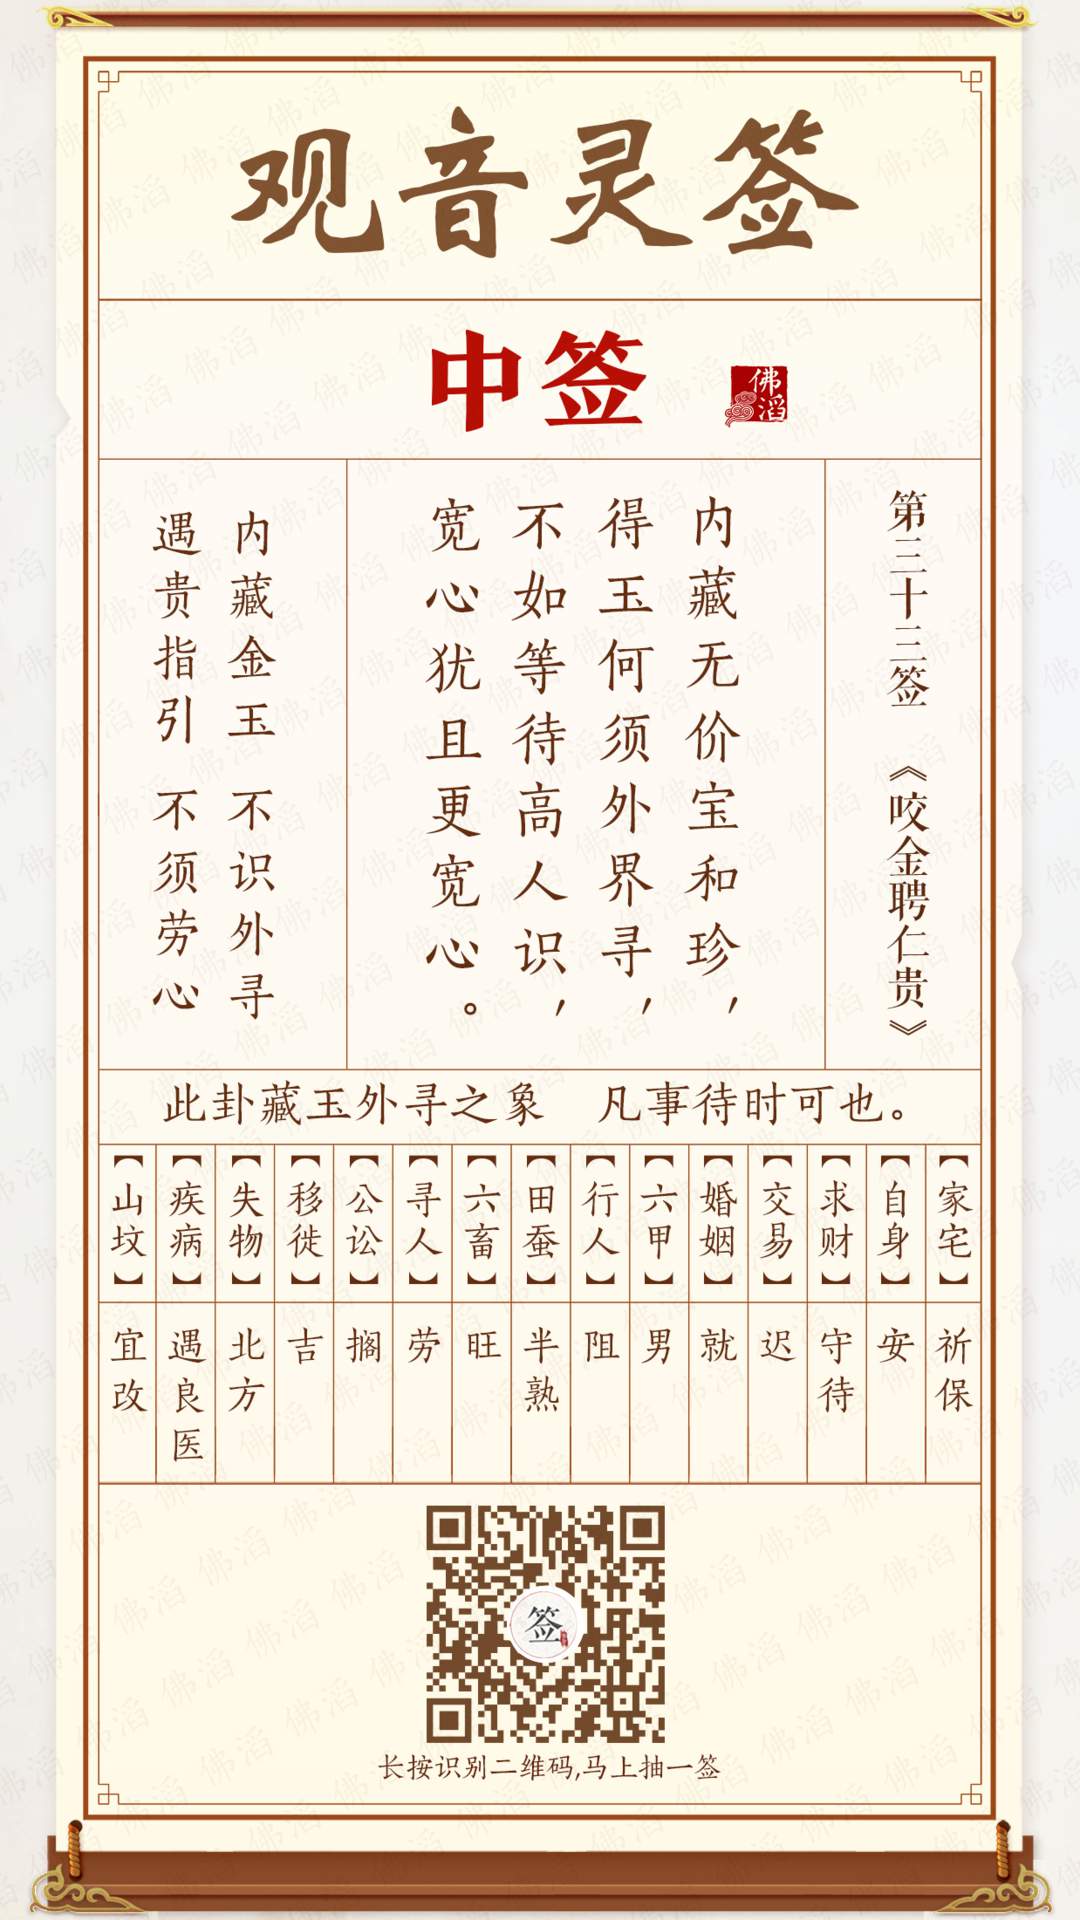 观音灵签
中签
佛滔
第三十三签 《咬金聘仁贵》
内藏无价宝和珍，
得玉何须外界寻，
不如等待高人识，
宽心犹且更宽心。
内藏金玉 不识外寻
遇贵指引 不须劳心
此卦藏玉外寻之象 凡事待时可也。
【家宅】祈保
【自身】安
【求财】守待
【交易】迟
【婚姻】就
【六甲】男
【行人】阻
【田蚕】半熟
【六畜】旺
【寻人】劳
【公讼】搁
【移徙】吉
【失物】北方
【疾病】遇良医
【山坟】宜改
签
长按识别二维码,马上抽一签